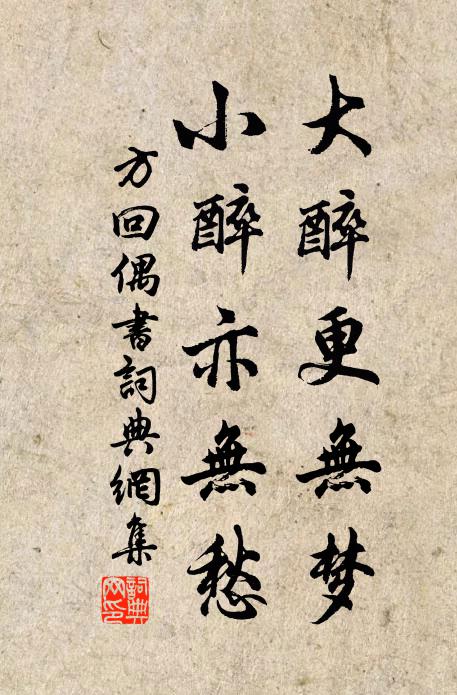 大醉更無梦
小醉亦無愁
方回偶書詞典網集
詞典网印